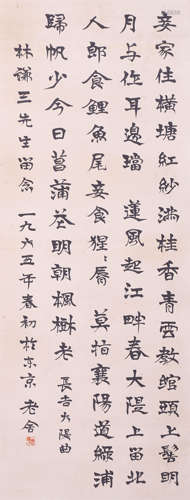 妾家住橫塘紅紗滿桂香青雲教綰頭上髻明
月与作耳邊璫 蓮風起江畔春大隄上留北
人郎食鯉魚尾妾食猩〻脣 莫指襄陽道綠浦
歸帆少今日菖蒲花明朝楓樹老 長吉大隄曲
林謙三先生留念 一九六五年春初於东京 老舍